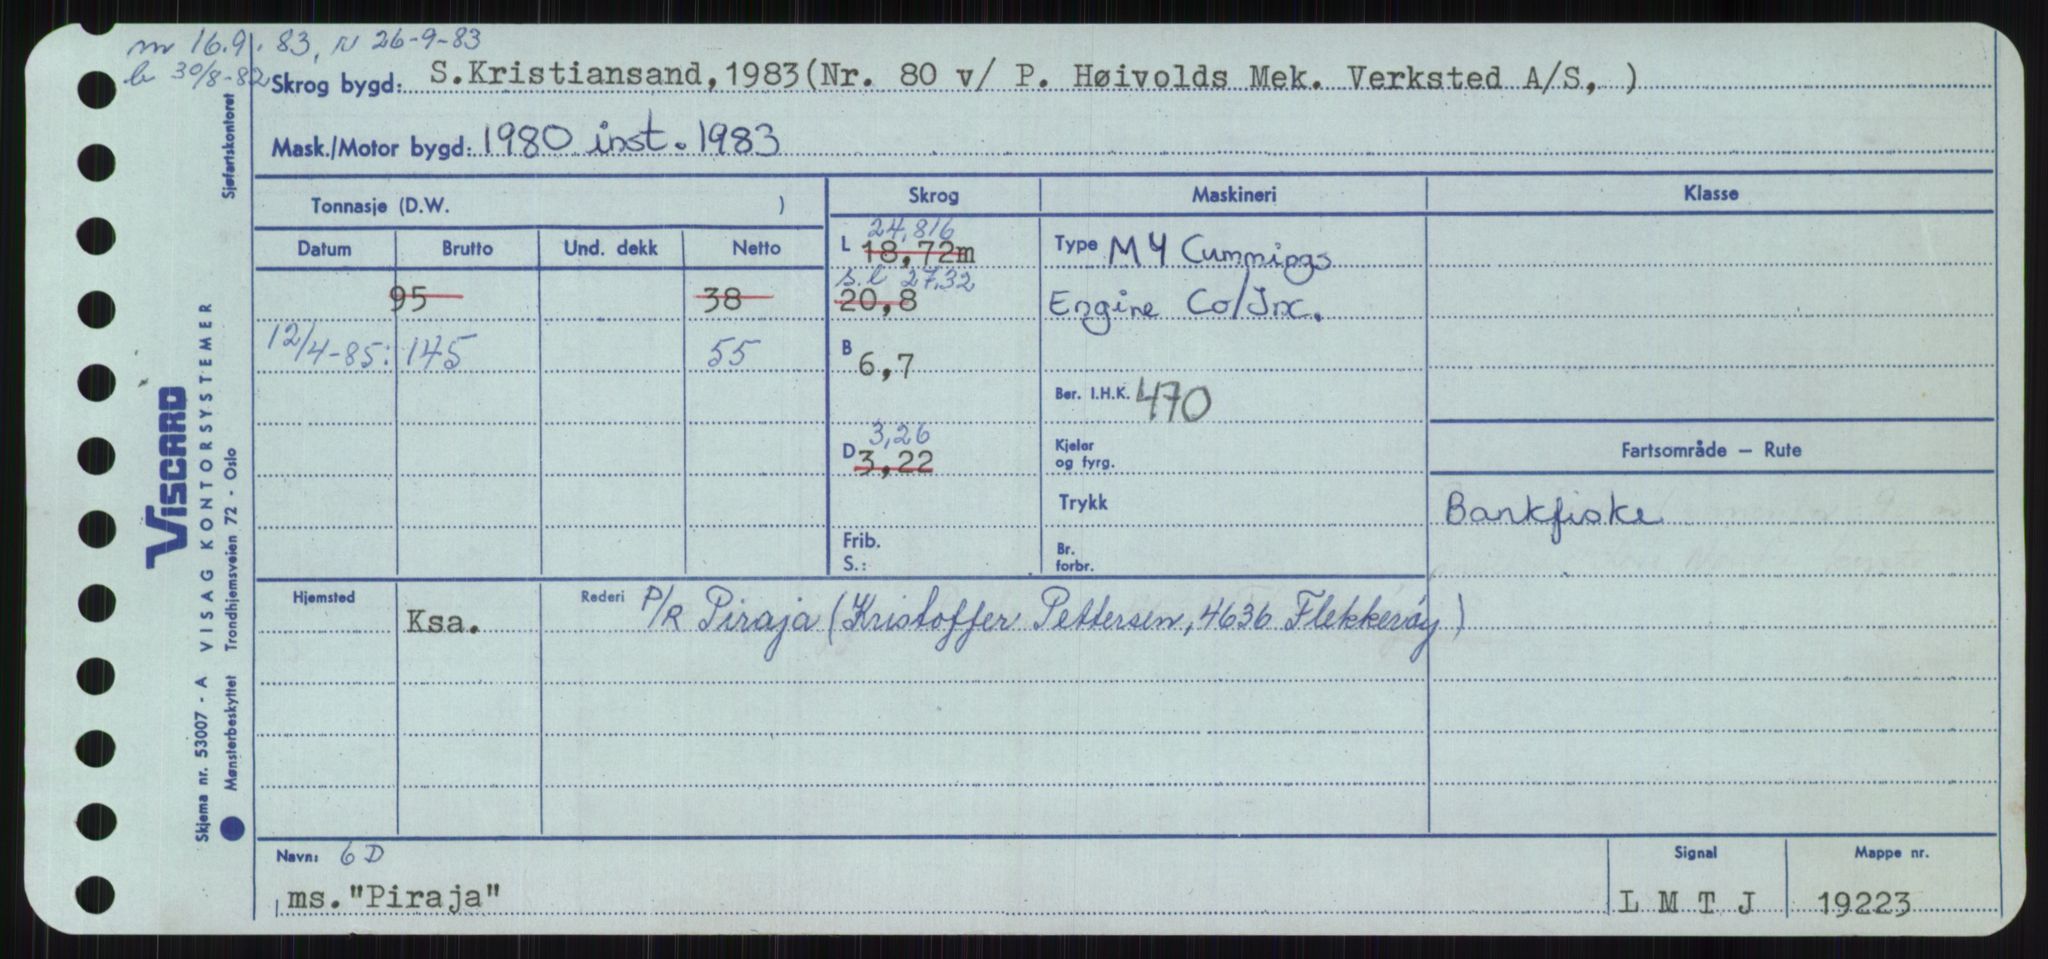 m 16.9.83, N 26-9-83
b 30/8-82
Skrog bygd: S.Kristiansand,1983(Nr. 80 v/ P. Høivolds Mek. Verksted A/S, )
Mask./Motor bygd: 1980 inst. 1983
Tonnasje (D.W. )
Skrog Maskineri Klasse
Datum Brutto Und. dekk Netto
24,816
L 18,72m Type M 4 Cummings
s.l 27,32
95 38 20,8 Engine Co/Inc.
12/4-85: 145 55 B 6,7
Ber. I.H.K. 470
3,26
D 3,22 Kjelar og fyrg.
Fartsområde — Rute
Trykk Bankfiske
Frib.
S.:
Br.
forbr.
Hjemsted Ksa. Rederi P/R Piraja (Kristoffer Pettersen, 4636 Flekkerøy)
Navn: 6 D
ms."Piraja"
Signal
L M T J
Mappe nr.
19223
VISCARD
Skjema nr. 53007 - A VISAG KONTORSYSTEMER
Mønsterbeskyttet Trondhjemsveien 72 - Oslo Sjøfartskontoret